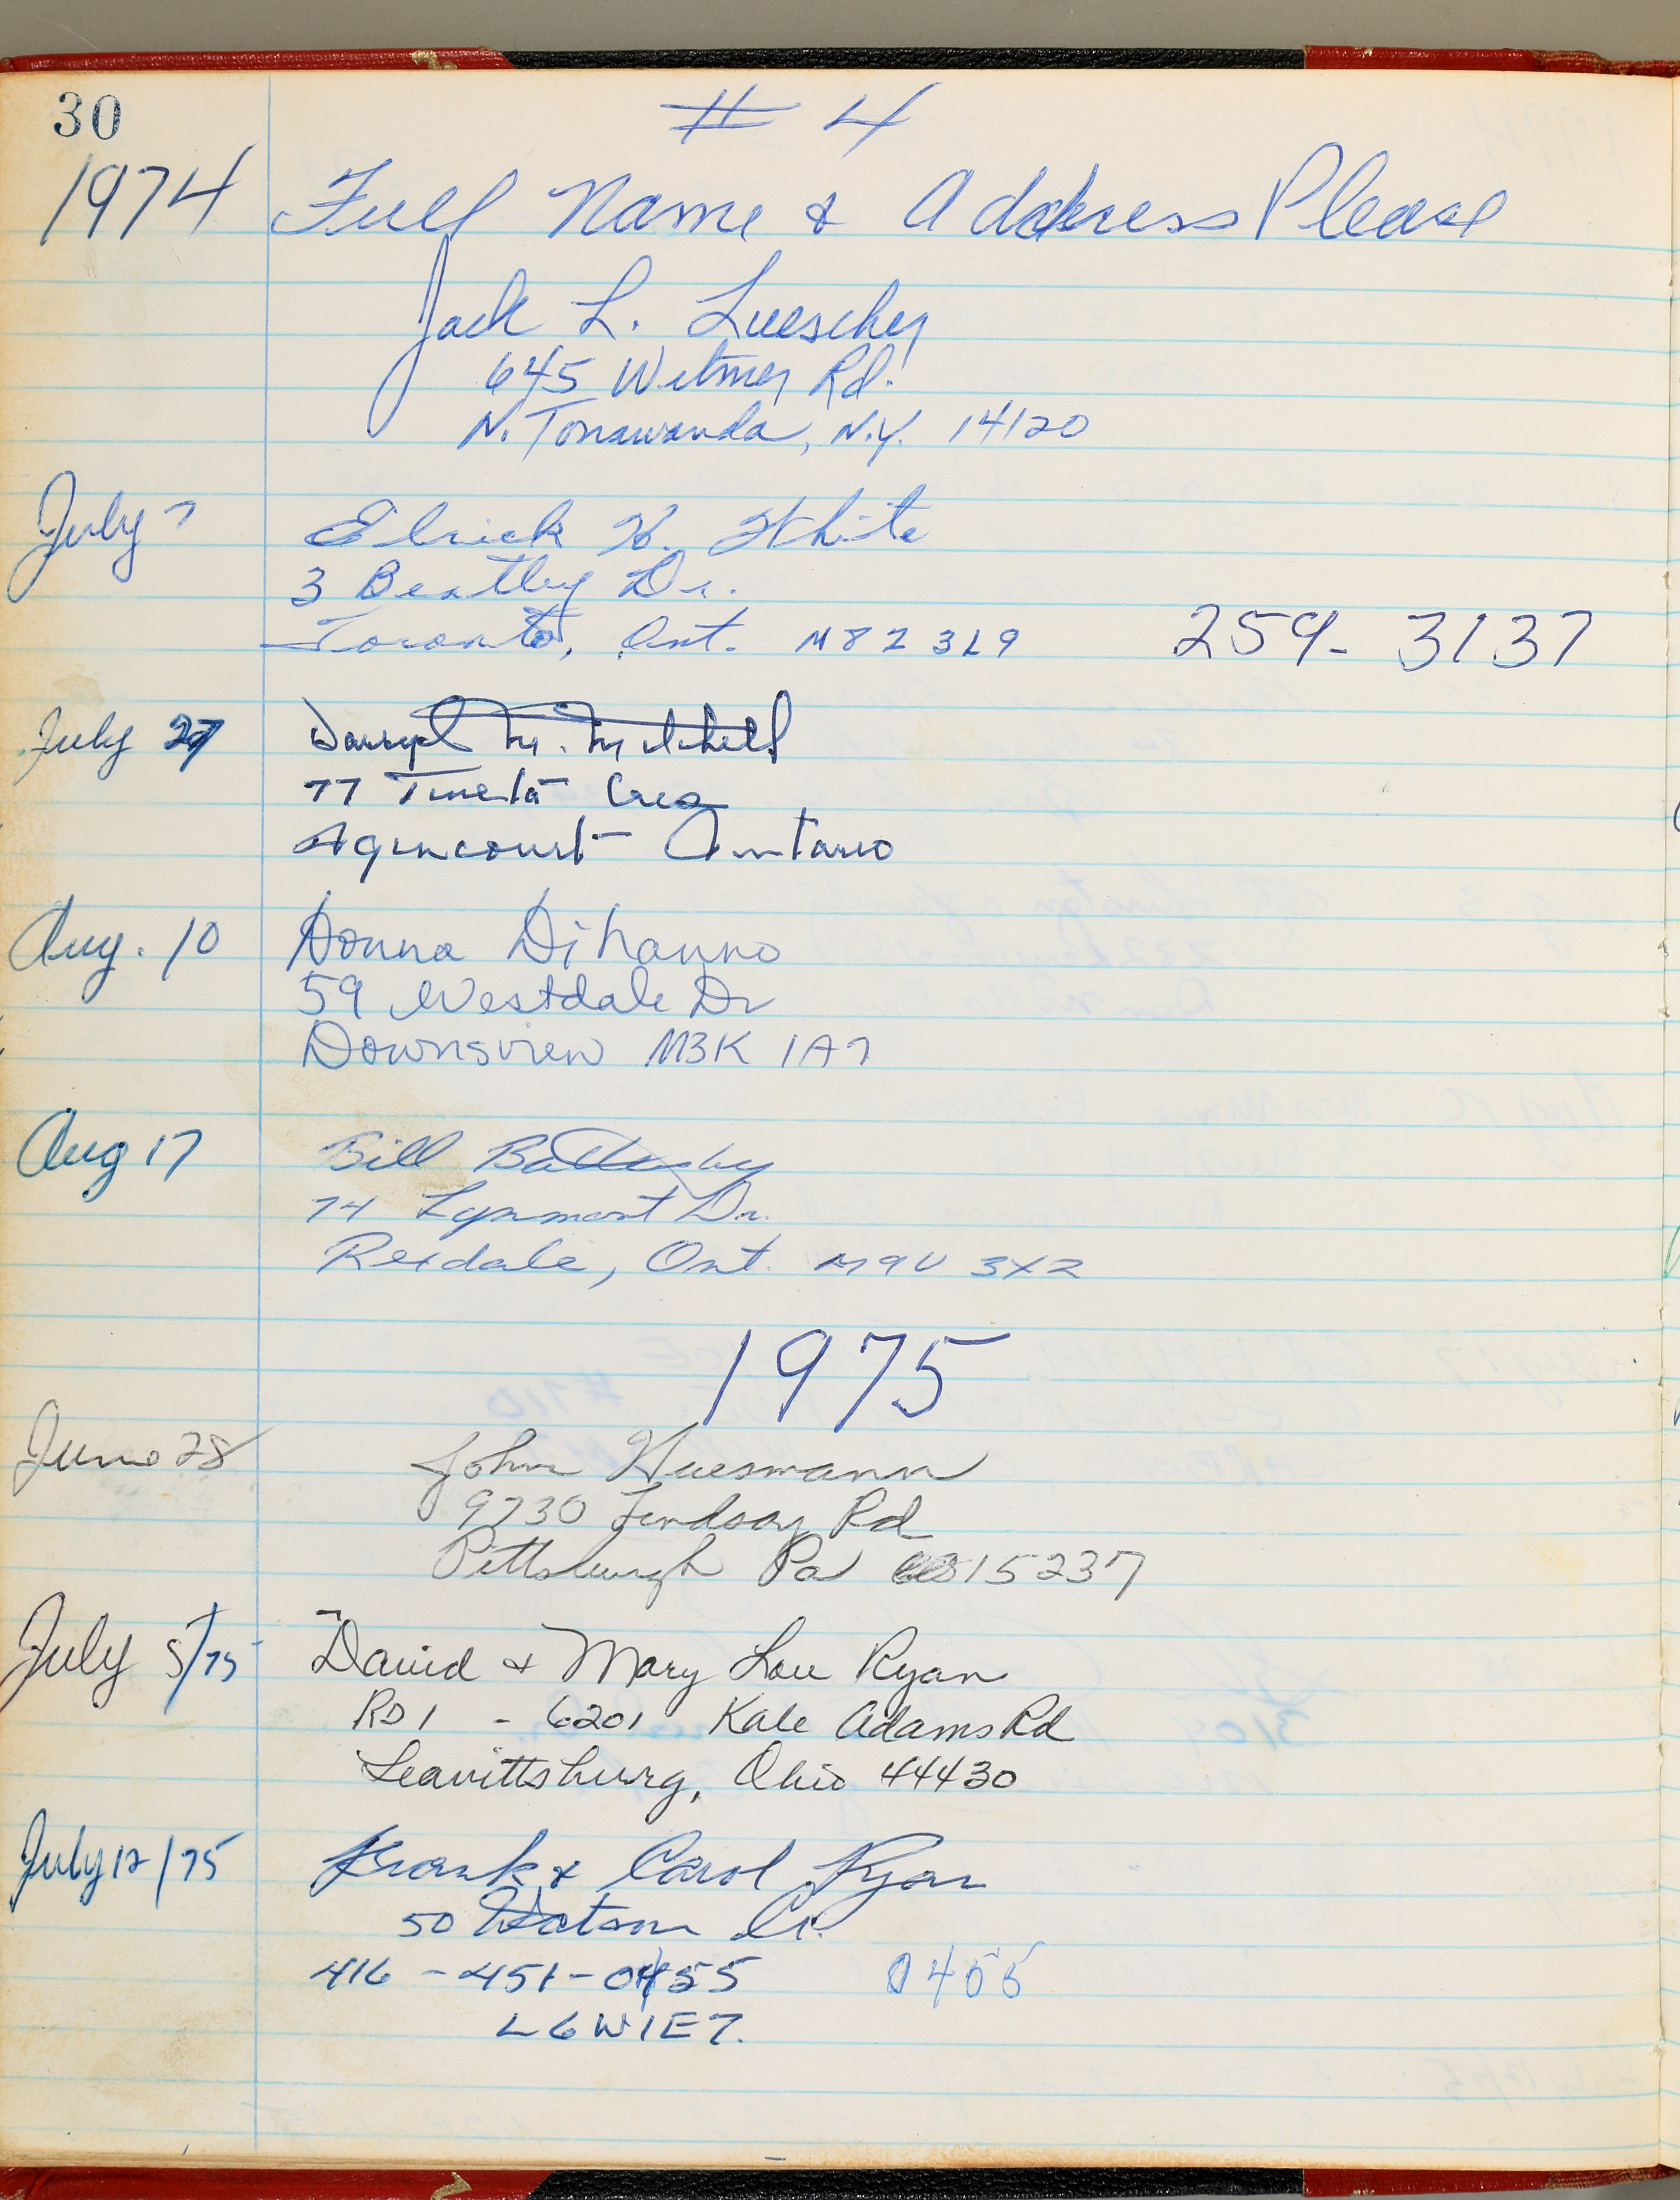 30
# 4
1974 Full Name & Address Please
Jack L. Luescher
645 Witmer Rd.
N. Tonawanda, N.Y. 14120
July 7 Elrick H. White
3 Beatley Dr.
Toronto, Ont. M8Z 3L9 259-3137
July 27 Darryl M. Mitchell
77 Cres
Agincourt Ontario
Aug. 10 Donna DiNanno
59 Westdale Dr
Downsview M3K 1A7
Aug 17 Bill Battersby
74 Lynmont Dr.
Rexdale, Ont. M9V 3X2
1975
June 28 John Huesmann
9730 Lindsay Rd
Pittsburgh Pa 15237
July 5/75 David & Mary Lou Ryan
RD1 - 6201 Kale Adams Rd
Leavittsburg, Ohio 44430
July 12/75 Frank & Carol Ryan
50 Watson Cr.
416-451-0455 0455
L6W1E7.